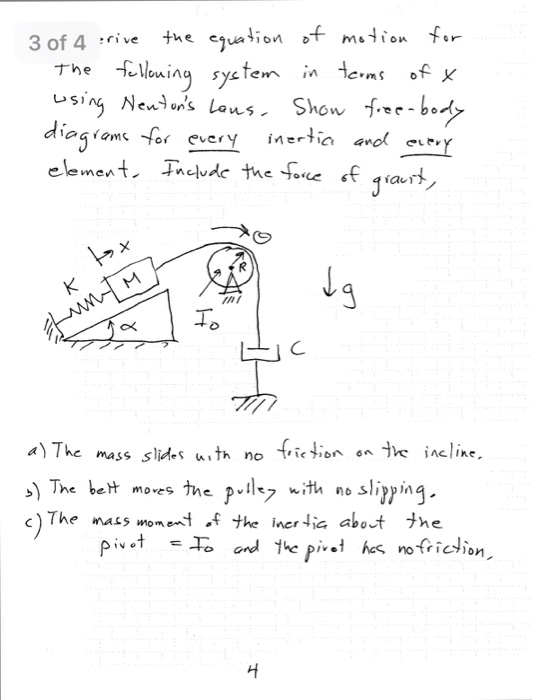 3 of 4 :rive the equation of motion for
The following system in terms of x
using Newton's Laws. Show free-body
diagrams for every inertia and every
element. Include the force of gravity
θ
x
K
M
R
↓g
α
I₀
C
a) The mass slides with no friction on the incline.
b) The belt moves the pulley with no slipping.
c) The mass moment of the inertia about the
pivot = I₀ and the pivot has no friction.
4